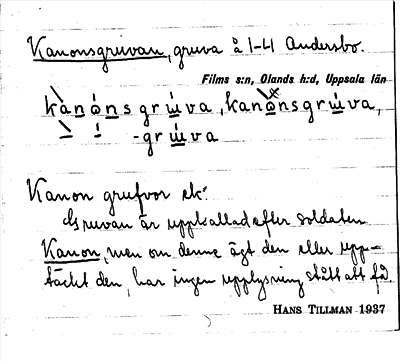 Kanonsgruvan, gruva å 1-4 Andersbo.
Films s:n, Olands h:d, Uppsala län
kanónsgrùva, kanònsgrùva,
-grùva
Kanon grufvor ek.
Gruvan är uppkallad efter soldaten
Kanon, men om denne ägt den eller upp-
täckt den, har ingen upplysning stått att få.
HANS TILLMAN 1937